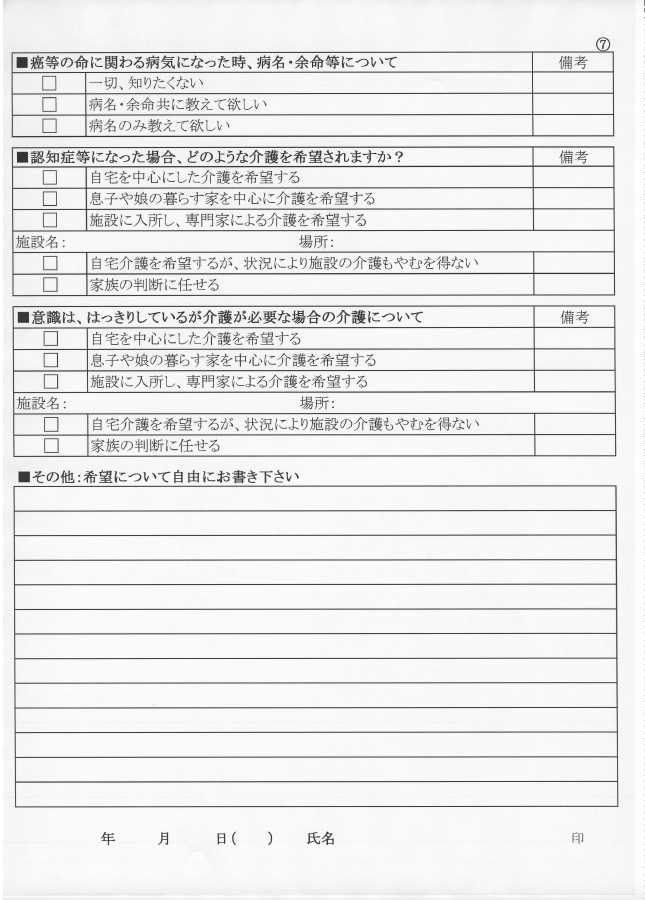 ⑦
■癌等の命に関わる病気になった時、病名・余命等について 備考
□ 一切、知りたくない
□ 病名・余命共に教えて欲しい
□ 病名のみ教えて欲しい
■認知症等になった場合、どのような介護を希望されますか？ 備考
□ 自宅を中心にした介護を希望する
□ 息子や娘の暮らす家を中心に介護を希望する
□ 施設に入所し、専門家による介護を希望する
施設名： 場所：
□ 自宅介護を希望するが、状況により施設の介護もやむを得ない
□ 家族の判断に任せる
■意識は、はっきりしているが介護が必要な場合の介護について 備考
□ 自宅を中心にした介護を希望する
□ 息子や娘の暮らす家を中心に介護を希望する
□ 施設に入所し、専門家による介護を希望する
施設名： 場所：
□ 自宅介護を希望するが、状況により施設の介護もやむを得ない
□ 家族の判断に任せる
■その他：希望について自由にお書き下さい
年 月 日（ ） 氏名 印